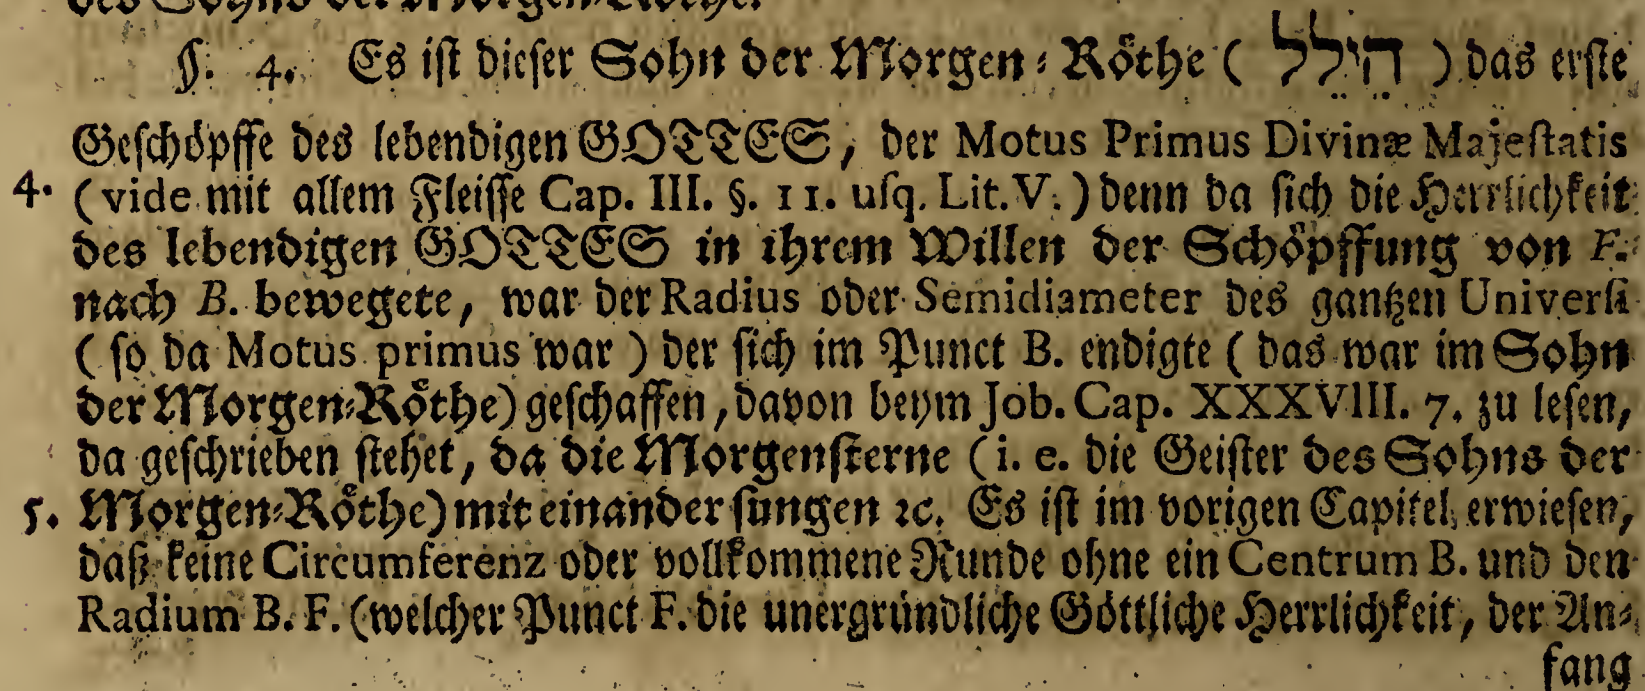 des Sohns der Morgen-Röthe.
§. 4. Es ist dieser Sohn der Morgen-Röthe ( הֵילֵל ) das erste
Geschöpffe des lebendigen GOTTES, der Motus Primus Divinæ Majestatis
4. (vide mit allem Fleisse Cap. III. §. 11. usq. Lit. V.) denn da sich die Herrlichkeit
des lebendigen GOTTES in ihrem Willen der Schöpffung von F.
nach B. bewegete, war der Radius oder Semidiameter des gantzen Universi
( so da Motus primus war ) der sich im Punct B. endigte ( das war im Sohn
der Morgen-Röthe) geschaffen, davon beym Job. Cap. XXXVIII. 7. zu lesen,
da geschrieben stehet, da die Morgensterne (i. e. die Geister des Sohns der
5. Morgen-Röthe) mit einander sungen ꝛc. Es ist im vorigen Capitel erwiesen,
daß keine Circumferenz oder vollkommene Runde ohne ein Centrum B. und den
Radium B. F. (welcher Punct F. die unergründliche Göttliche Herrlichkeit, der An-
fang